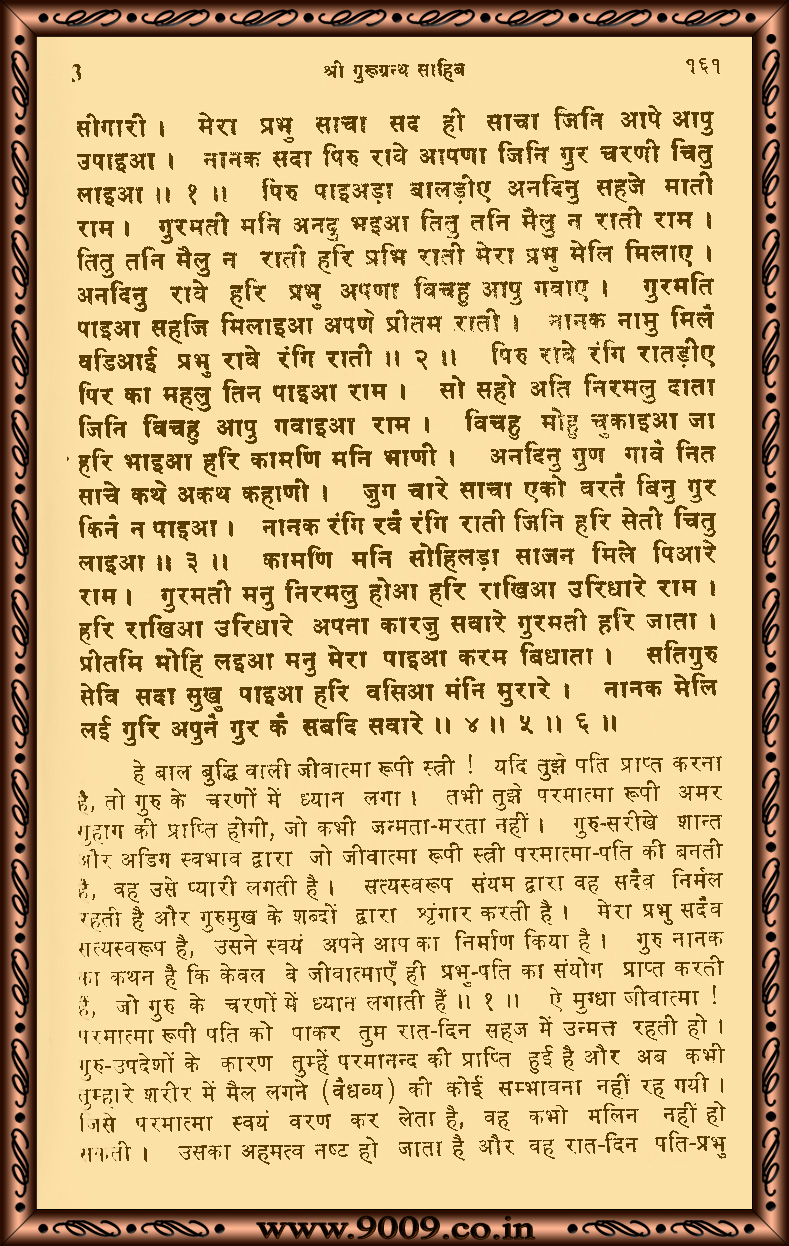 3 श्री गुरूग्रन्थ साहिब १६१
सीगारी । मेरा प्रभु साचा सद ही साचा जिनि आपे आपु
उपाइआ । नानक सदा पिरु रावे आपणा जिनि गुर चरणी चितु
लाइआ ॥ १ ॥ पिरु पाइअड़ा बालड़ीए अनदिनु सहजे माती
राम । गुरमती मनि अनदु भइआ तितु तनि मैलु न राती राम ।
तितु तनि मैलु न राती हरि प्रभि राती मेरा प्रभु मेलि मिलाए ।
अनदिनु रावे हरि प्रभु अपणा विचहु आपु गवाए । गुरमति
पाइआ सहजि मिलाइआ अपणे प्रीतम राती । नानक नामु मिलै
वडिआई प्रभु रावे रंगि राती ॥ २ ॥ पिरु रावे रंगि रातड़ीए
पिर का महलु तिन पाइआ राम । सो सहो अति निरमलु दाता
जिनि विचहु आपु गवाइआ राम । विचहु मोहु चुकाइआ जा
हरि भाइआ हरि कामणि मनि भाणी । अनदिनु गुण गावै नित
साचे कथे अकथ कहाणी । जुग चारे साचा एको वरतै बिनु गुर
किनै न पाइआ । नानक रंगि रवै रंगि राती जिनि हरि सेती चितु
लाइआ ॥ ३ ॥ कामणि मनि सोहिलड़ा साजन मिले पिआरे
राम । गुरमती मनु निरमलु होआ हरि राखिआ उरिधारे राम ।
हरि राखिआ उरिधारे अपना कारजु सवारे गुरमती हरि जाता ।
प्रीतमि मोहि लइआ मनु मेरा पाइआ करम बिधाता । सतिगुरु
सेवि सदा सुखु पाइआ हरि वसिआ मंनि मुरारे । नानक मेलि
लई गुरि अपुनै गुर कै सबदि सवारे ॥ ४ ॥ ५ ॥ ६ ॥
हे बाल बुद्धि वाली जीवात्मा रूपी स्त्री ! यदि तुझे पति प्राप्त करना
है, तो गुरु के चरणों में ध्यान लगा । तभी तुझे परमात्मा रूपी अमर
सुहाग की प्राप्ति होगी, जो कभी जन्मता-मरता नहीं । गुरु-सरीखे शान्त
और अडिग स्वभाव द्वारा जो जीवात्मा रूपी स्त्री परमात्मा-पति की बनती
है, वह उसे प्यारी लगती है । सत्यस्वरूप संयम द्वारा वह सदैव निर्मल
रहती है और गुरुमुख के शब्दों द्वारा श्रृंगार करती है । मेरा प्रभु सदैव
सत्यस्वरूप है, उसने स्वयं अपने आप का निर्माण किया है । गुरु नानक
का कथन है कि केवल वे जीवात्माएँ ही प्रभु-पति का संयोग प्राप्त करती
हैं, जो गुरु के चरणों में ध्यान लगाती हैं ॥ १ ॥ ऐ मुग्धा जीवात्मा !
परमात्मा रूपी पति को पाकर तुम रात-दिन सहज में उन्मत्त रहती हो ।
गुरु-उपदेशों के कारण तुम्हें परमानन्द की प्राप्ति हुई है और अब कभी
तुम्हारे शरीर में मैल लगने (वैधव्य) की कोई सम्भावना नहीं रह गयी ।
जिसे परमात्मा स्वयं वरण कर लेता है, वह कभी मलिन नहीं हो
सकती । उसका अहमत्व नष्ट हो जाता है और वह रात-दिन पति-प्रभु
www.9009.co.in